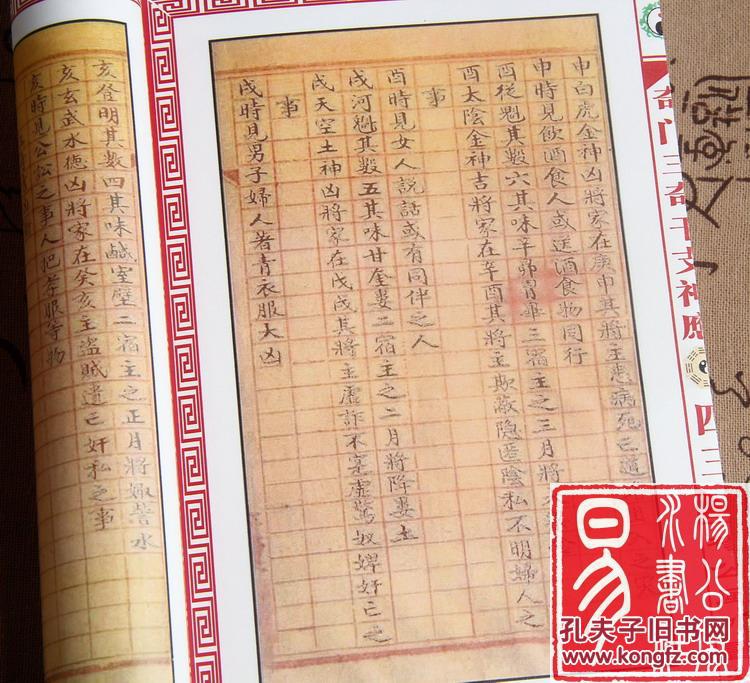 奇门三奇干支神应
四三
申白虎金神凶將家在庚申其將主患病死亡道
申時見飲酒食人或送酒食物同行
酉從魁其数六其味辛昴胃畢三宿主之三月將
酉太陰金神吉將家在辛酉其將主欺蔽隐匿陰私不明婦人之
事
酉時見女人説話或有同伴之人
戌河魁其数五其味甘奎婁二宿主之二月將降婁土
戌天空土神凶將家在戊戌其將主虚詐不寔虚驚奴婢奸亡之
事
戌時見男子婦人著青衣服大凶
亥登明其数四其味鹹室壁二宿主之正月將娵訾水
亥玄武水德凶將家在癸亥主盗賊遺亡奸私之事
亥時見公訟之事人把孝服等物
易
楊公
水書
孔夫子旧书网
www.kongfz.com